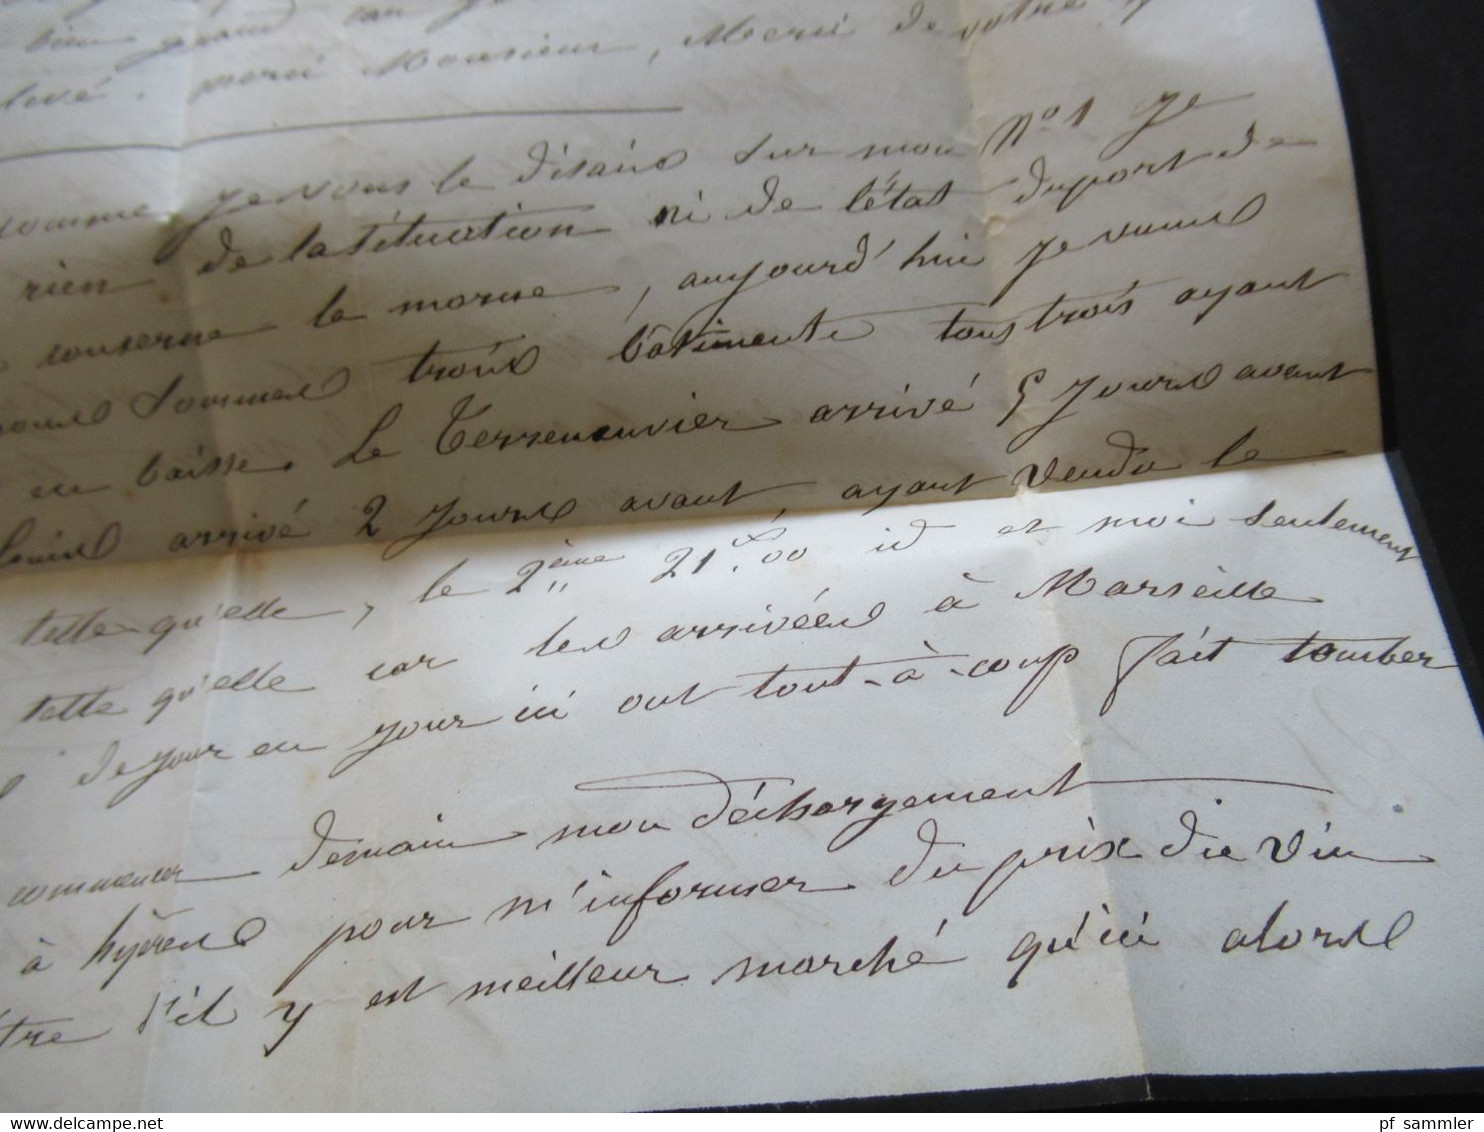 bien grand
levé. merci Monsieur, Merci de votre
comme je vous le disais sur mon N° 1 Je
rien de la situation ni de l'état du port de
conserne la morue, aujourd'hui je viens
nous sommes trois bâtiments tous trois ayant
en baisse. Le Terreneuvier arrivé 5 jours avant
arrivé 2 jours avant, ayant vendu le
telle qu'elle, le 2ème 21.00 id et moi seulement
telle qu'elle car les arrivées à Marseille
de jour en jour ici ont tout-à-coup fait tomber
commencer demain mon déchargement
à hyères pour m'informer du prix du vin
s'il y est meilleur marché qu'ici alors
pf_sammler